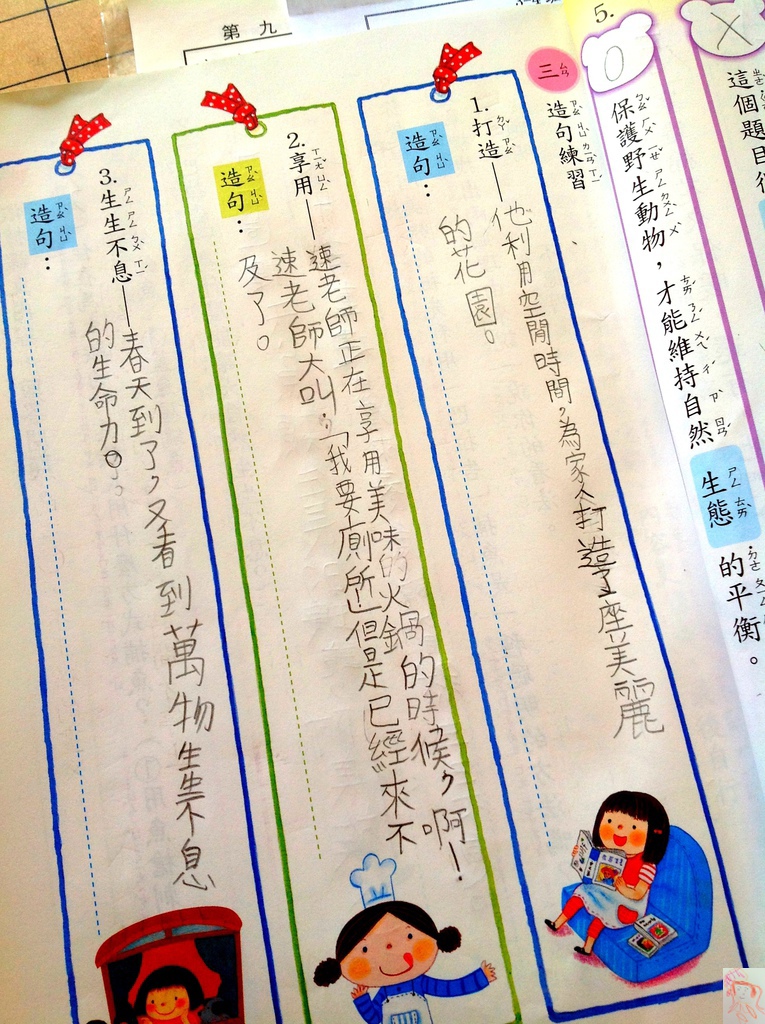 第九
5.
X
這個題目
O
保護野生動物，才能維持自然生態的平衡。
三
造句練習
1.打造—
造句：
他利用空閒時間，為家人打造了座美麗
的花園。
2.享用—
造句：
速老師正在享用美味的火鍋的時候，啊！
速老師大叫，「我要廁所」但是已經來不
及了。
3.生生不息—
造句：
春天到了，又看到萬物生生不息
的生命力。